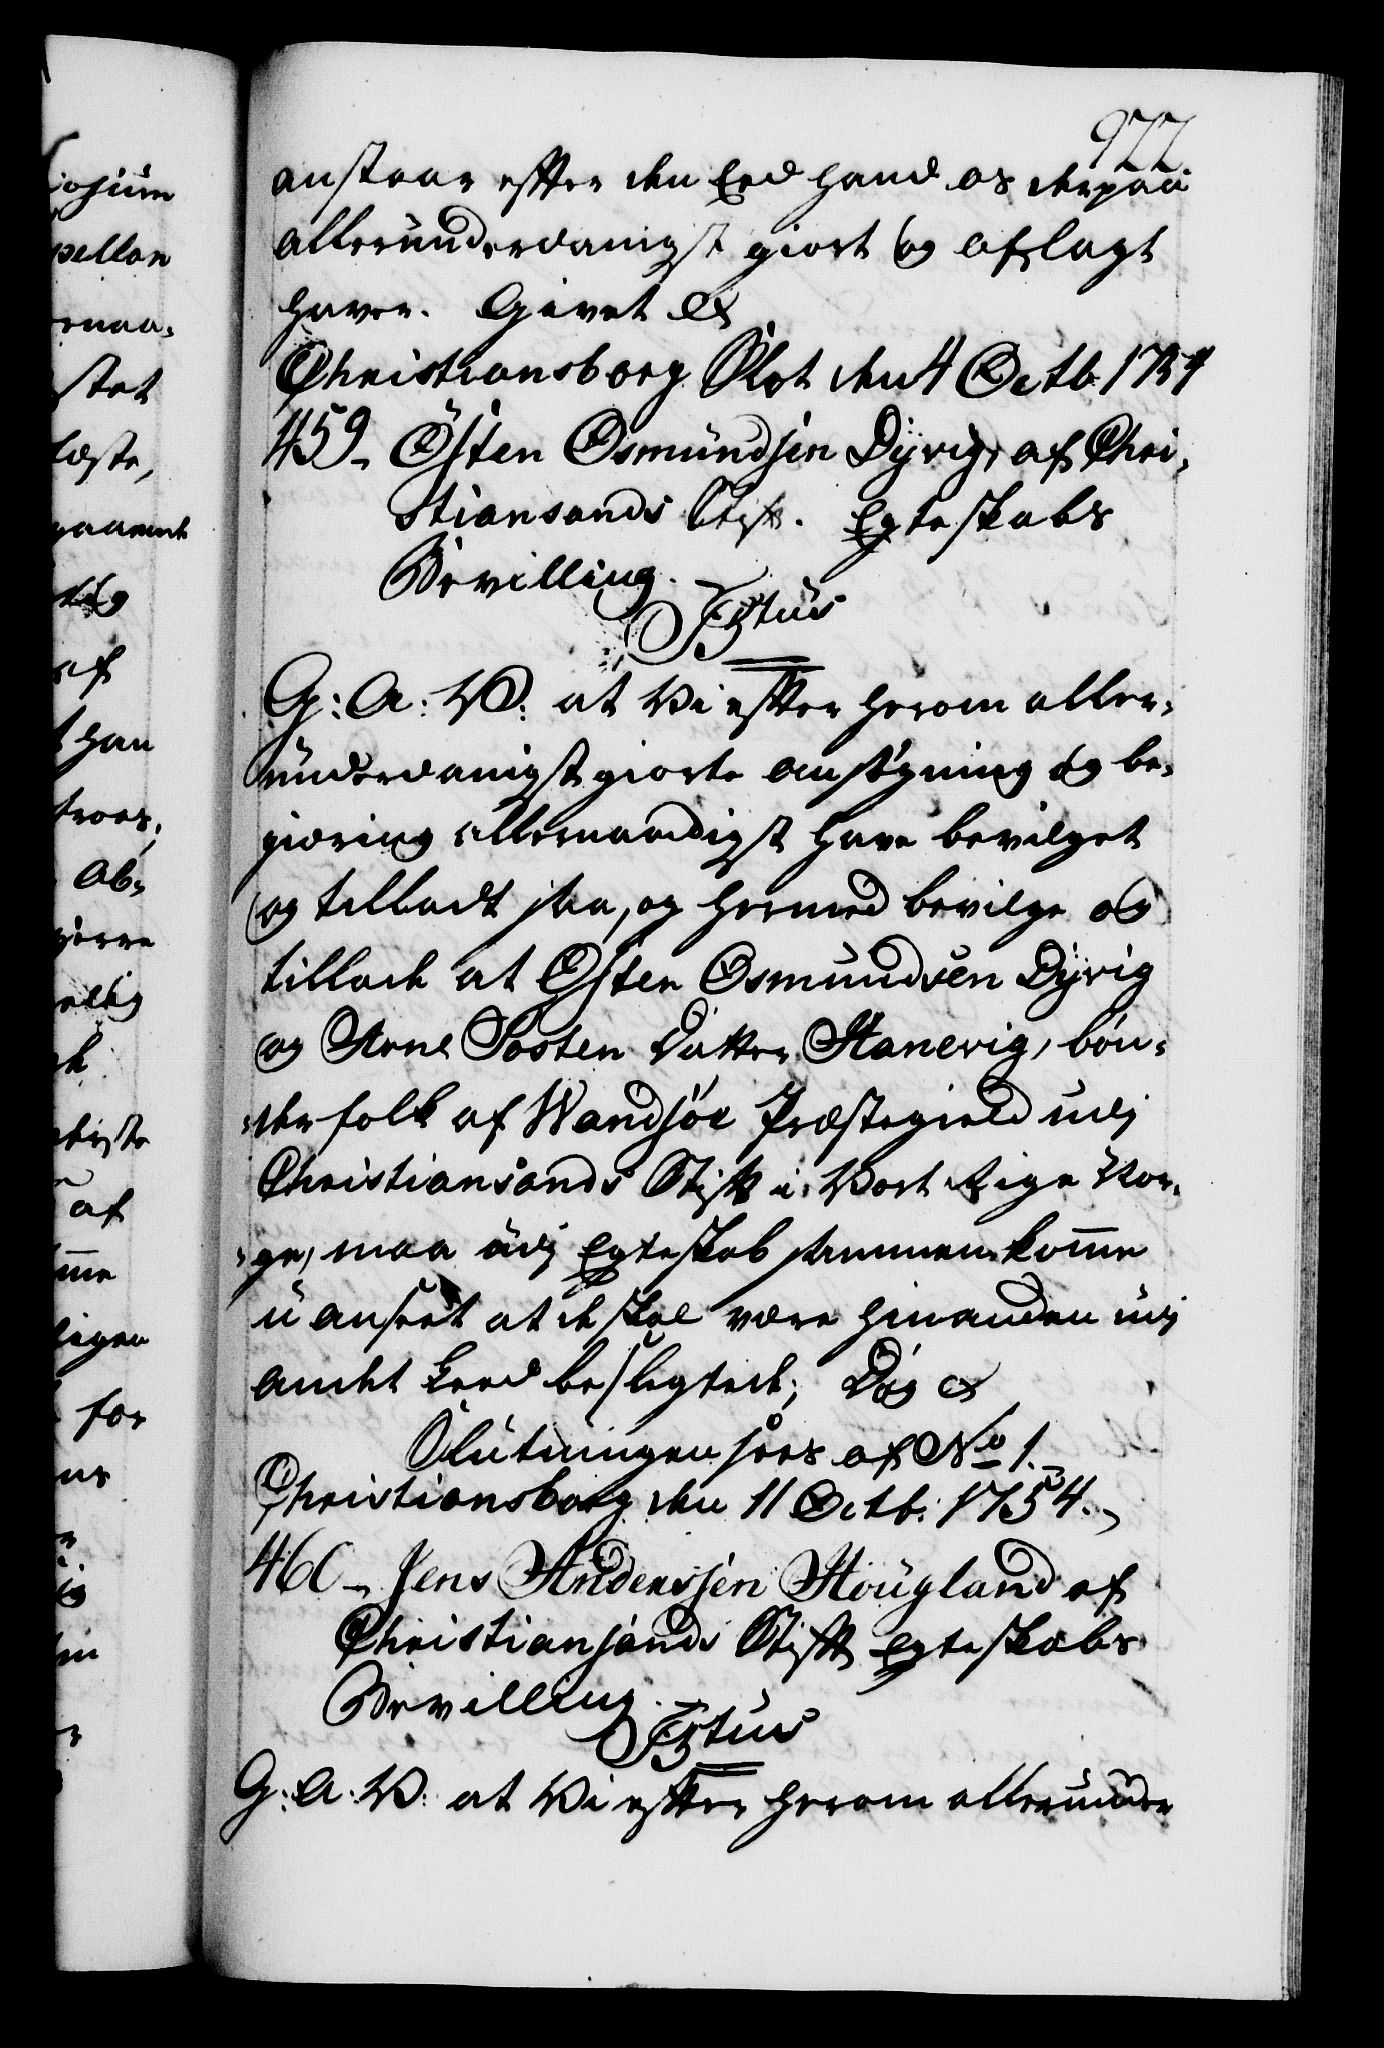 977
anstaar efter den Eed hand os derpaa
allerunderdanigst giort og aflagt
haver. Givet &
Christiansborg Slot den 4 Octb. 1754
459. Østen Osmundsen Dyrvig, af Chri-
stiansands Stift. Egteskabs
Bevilling.
G: A: V: at Vi efter herom aller-
underdanigst giorte ansøgning og be-
giæring allernaadigst have bevilget
og tilladt saa, og hermed bevilge og
tillade at Østen Osmundsen Dyrig
og Arne Tosten Datter Stanevig, bøn-
der folk af Wandsøe Præstegield udj
Christiansands Stift i Vort Rige Nor-
ge, maa udj Egteskab sammen komme
uanseet at de skal være hinanden udj
andet Leed beslegtede; Dog &
Slutningen sees af No 1.
Christiansborg den 11 Octb. 1754.
460. Jens Andersen Hougland af
Christiansands Stift Egteskabs
Bevilling.
G: A: V: at Vi efter herom allerunder